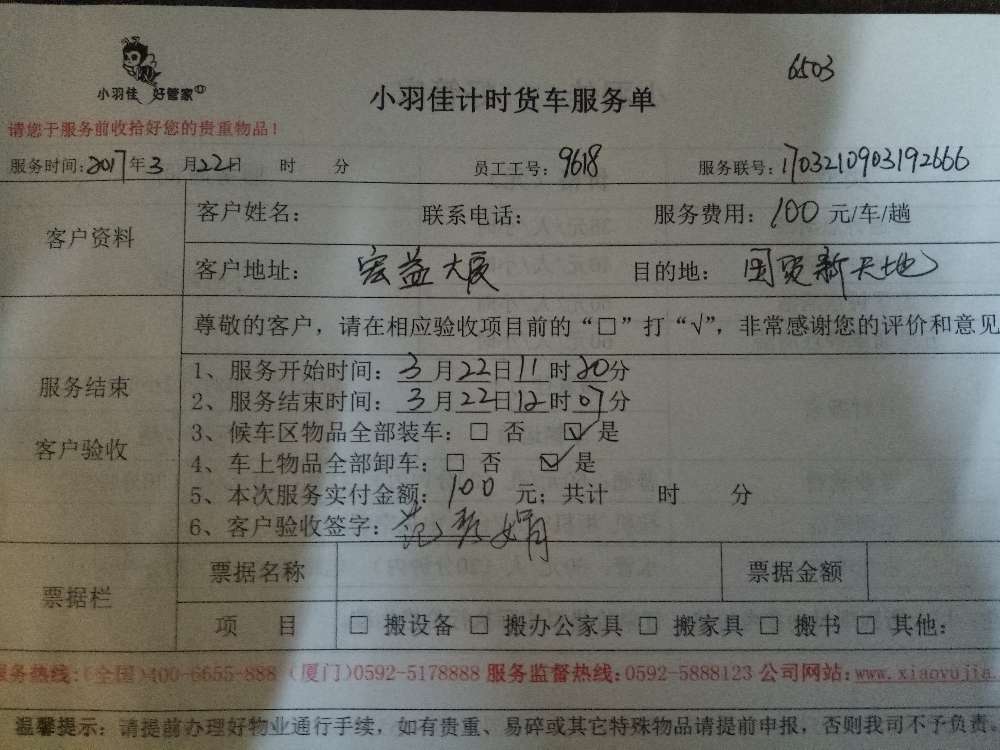 6503
小羽佳 好管家
小羽佳计时货车服务单
请您于服务前收拾好您的贵重物品！
服务时间：2017年3月22日 时 分 员工工号：9618 服务联号：1703210903192666
客户资料
客户姓名： 联系电话： 服务费用：100元/车/趟
客户地址：宏益大厦 目的地：国贸新天地
尊敬的客户，请在相应验收项目前的“□”打“√”，非常感谢您的评价和意见
服务结束
客户验收
1、服务开始时间：3月22日11时20分
2、服务结束时间：3月22日12时07分
3、候车区物品全部装车：□ 否 ☑ 是
4、车上物品全部卸车：□ 否 ☑ 是
5、本次服务实付金额：100 元；共计 时 分
6、客户验收签字：
票据栏
票据名称 票据金额
项 目 □ 搬设备 □ 搬办公家具 □ 搬家具 □ 搬书 □ 其他：
服务热线：(全国)400-6655-888 (厦门)0592-5178888 服务监督热线：0592-5888123 公司网站：www.xiaoyujia.
温馨提示：请提前办理好物业通行手续，如有贵重、易碎或其它特殊物品请提前申报，否则我司不予负责。